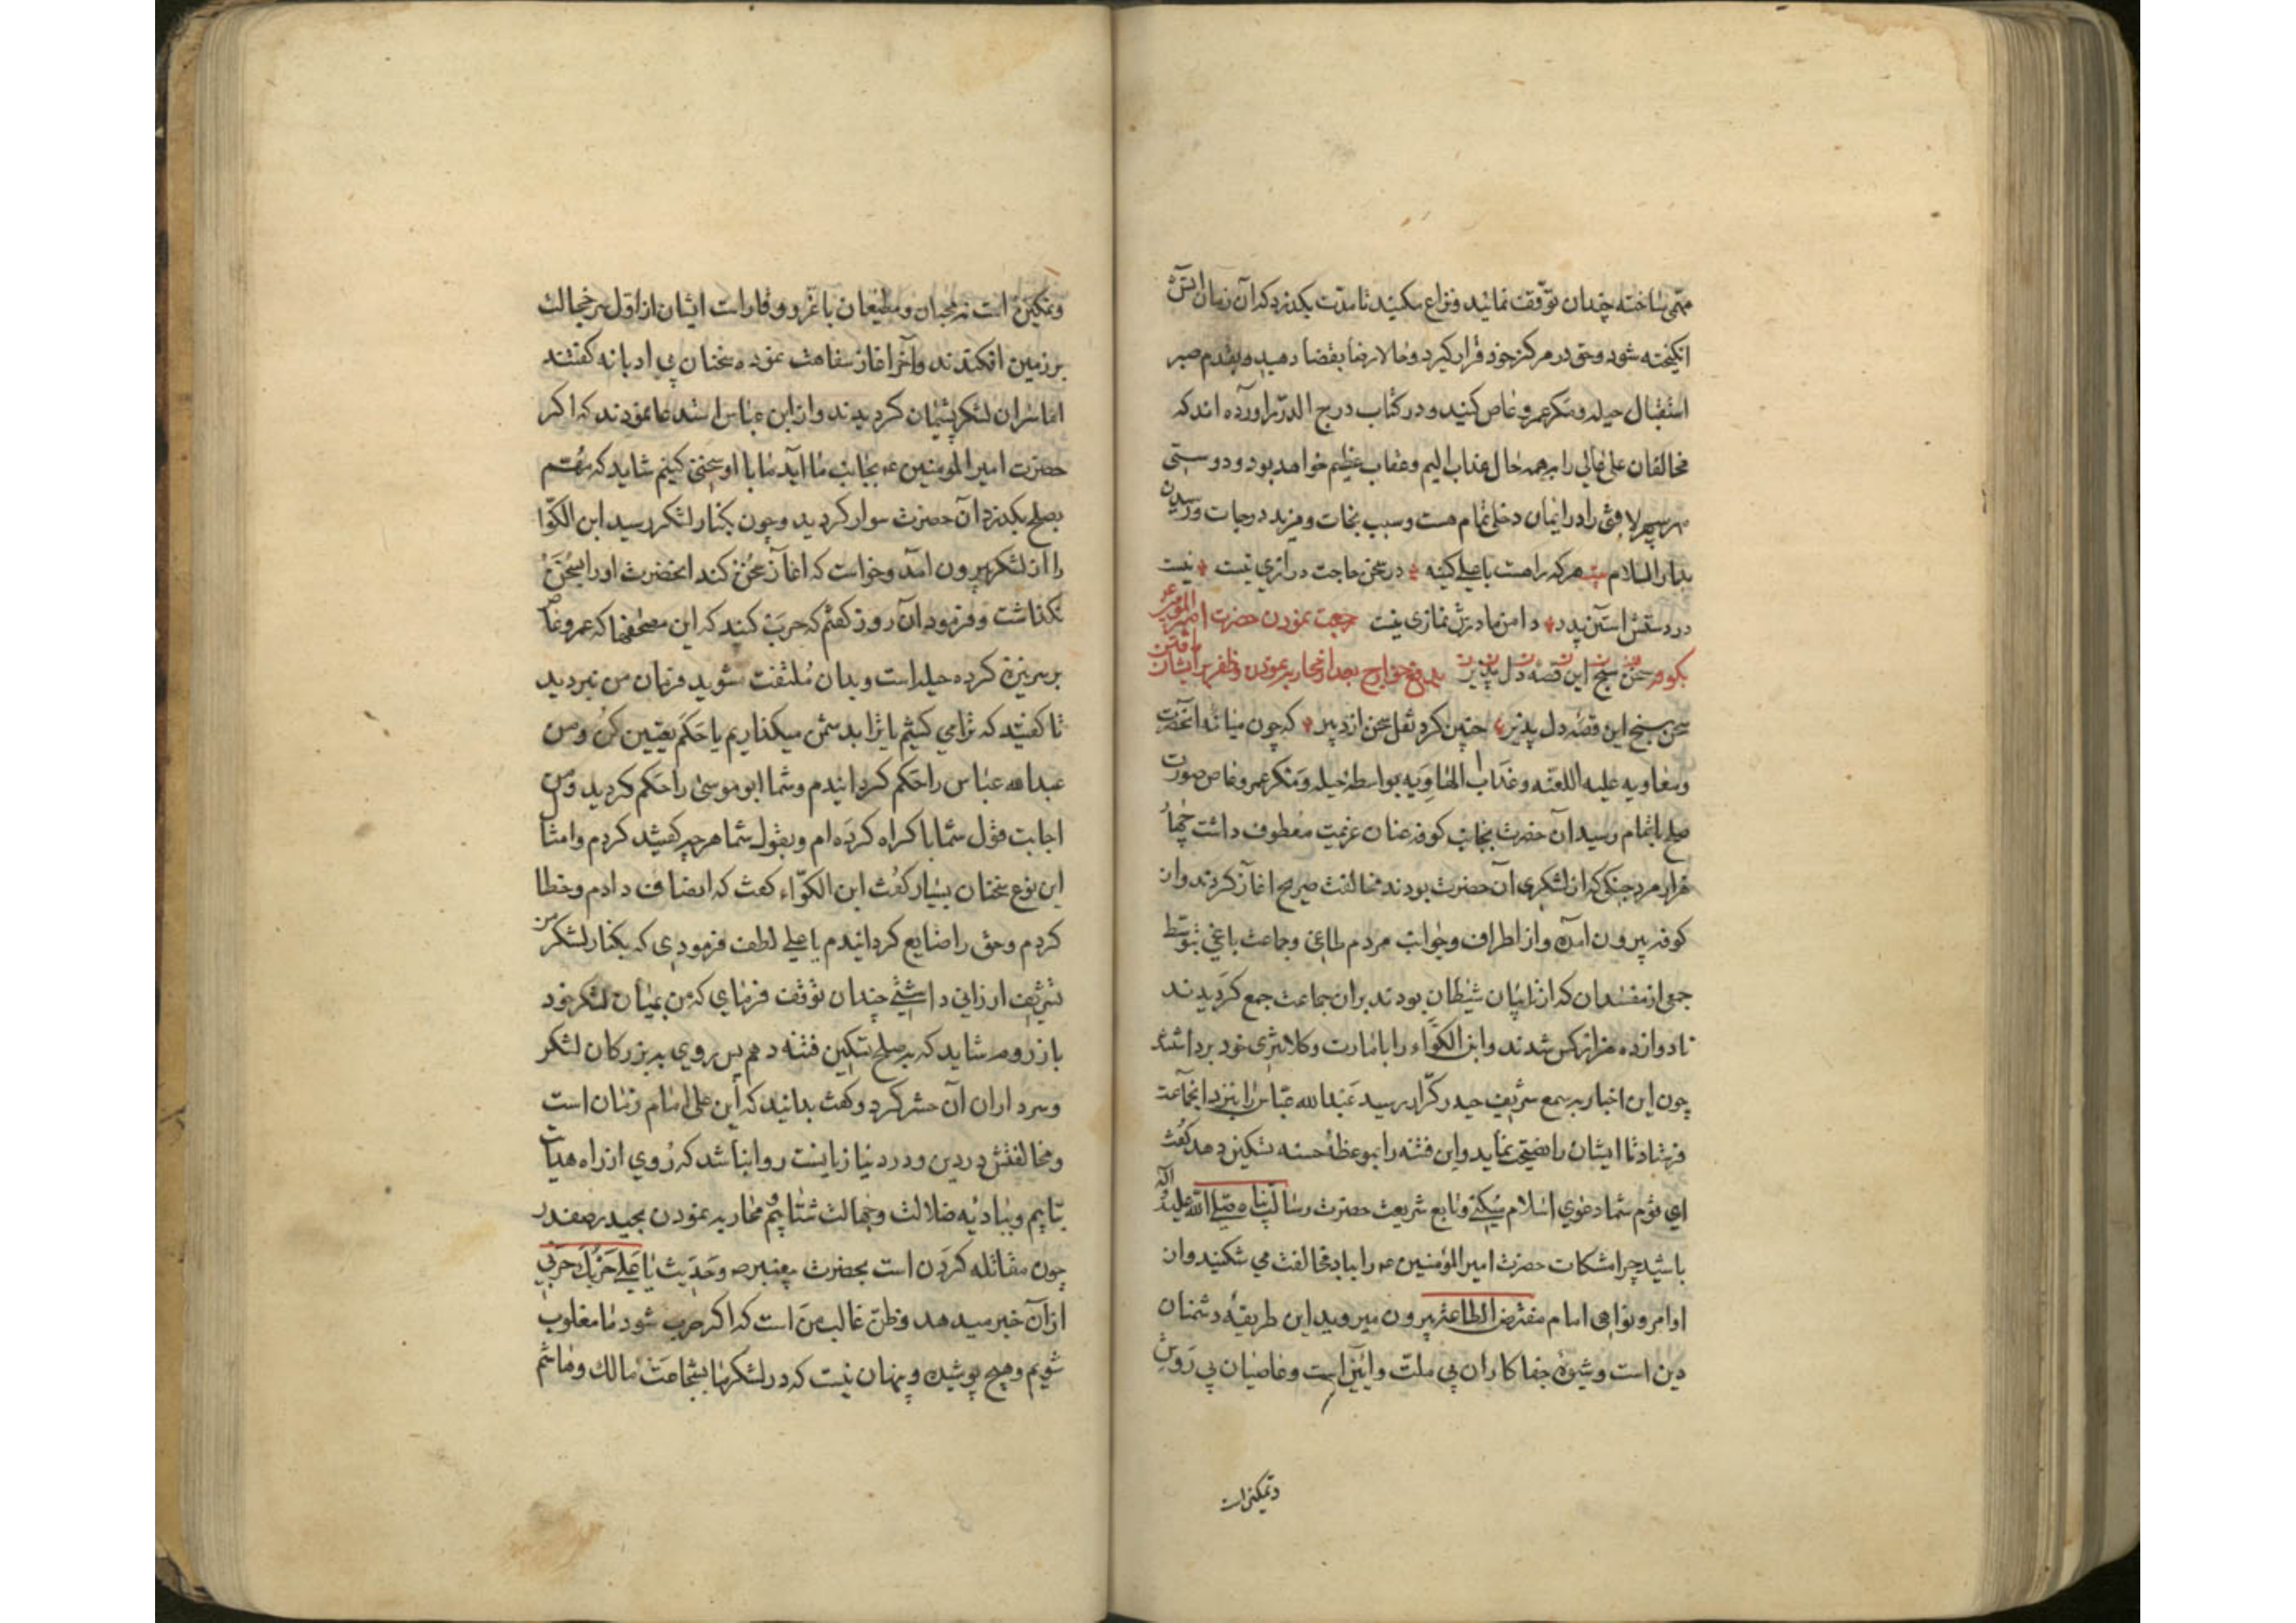 مهمی ساخته چندان توقف نمائید و نزاع مکنید تا مدت بکذرد که آن زمان آتش
انکیخته شود و حق در مرکز خود قرار کیرد و حالا رضا بقضا دهید و بقدم صبر
استقبال حیله و مکر عمرو عاص کنید و در کتاب درج الدرر آورده اند که
مخالفان علی عالی را بهمه حال عذاب الیم و عقاب عظیم خواهد بود و دوستی
سپهر لافتی را در ایمان دخلی تمام هست و سبب نجات و مزید درجات و رسیدن
بدار السلام بیت هر که را هست با علی کینه در سخن حاجت درازی نیست نیست
در دستش استین پدر دامن مادرش نمازی نیست رجعت نمودن حضرت امیر المؤمنین
بکوفه و دفع خوارج بعد از محاربه نمودن و ظفر یافتن بر ایشان
سخن سنج این قصه دل پذیر چنین کرد نقل سخن از دبیر که چون میانه آنحضرت
و معاویه علیه اللعنه و عذاب الهاویه بواسطه حیله و مکر عمرو عاص صورت
صلح باتمام رسید آن حضرت بجانب کوفه عنان عزیمت معطوف داشت چهار
هزار مرد جنکی که از لشکری آن حضرت بودند مخالفت صریح اغاز کردند و از
کوفه بیرون آمده و از اطراف و جوانب مردم طاغی و جماعت باغی بتوسط
جمعی از مفسدان که از نایبان شیطان بودند بران جماعت جمع کردیدند
تا دوازده هزار کس شدند و ابن الکواء را بامارت و کلانتری خود برداشتند
چون این اخبار به سمع شریف حیدر کرار رسید عبدالله عباس را بنزد انجماعت
فرستاد تا ایشان را نصیحت نماید و این فتنه را بموعظهٔ حسنه تسکین دهد کفت
ای قوم شما دعوی اسلام میکنید و تابع شریعت حضرت رسالت پناه صلی الله علیه و آله
باشید چرا مشکات حضرت امیر المؤمنین ع را بباد مخالفت می شکنید و از
اوامر و نواهی امام مفترض الطاعة بیرون میروید این طریقهٔ دشمنان
دین است و شیوهٔ جفا کاران بی ملت و ایین است و عاصیان بی روش
و تمکین است
و تمکین است نه محبان و مطیعان با عز و وقار است ایشان از اول سر خجالت
بر زمین افکندند و آخر اغاز سفاهت نموده سخنان بی ادبانه کفتند
اما سران لشکر پشیمان کردیدند و از ابن عباس استدعا نمودند که اکر
حضرت امیر المومنین ع بجانب ما آید ما با او سخنی کنیم شاید که مهم
بصلح بکذرد آن حضرت سوار کردید و چون بکنار لشکر رسید ابن الکوا
را از لشکر بیرون آمد و خواست که اغاز سخن کند انحضرت او را بسخن
نکذاشت و فرمود آن روز کفتم که حرب کنید که این مصحفها که عمرو عاص
بر سر نیزه کرده حیله است و بدان ملتفت مشوید فرمان من نبردید
تا کفتید که ترا می کشیم یا ترا بدشمن میکذاریم یا حکم تعیین کن و من
عبدالله عباس را حکم کردانیدم و شما ابو موسی را حکم کردید و من
اجابت قول شما با کراه کرده ام و بقول شما هر چه کفتید کردم و امثال
این نوع سخنان بسیار کفت ابن الکواء کفت که انصاف دادم و خطا
کردم و حق را ضایع کردانیدم یا علی لطف فرمودی که بکنار لشکر من
تشریف ارزانی داشتی چندان توقف فرمای که من بمیان لشکر خود
باز روم شاید که به صلح تسکین فتنه دهم پس روی به بزرکان لشکر
و سرداران آن حشر کرد و کفت بدانید که این علی امام زمان است
و مخالفتش در دین و در دنیا زیانست روا نباشد که روی از راه هدایت
بتابیم و ببادیه ضلالت و جهالت شتابیم و محاربه نمودن بحیدر صفدر
چون مقاتله کردن است بحضرت پیغمبر ص و حدیث یا علی حربک حربی
از آن خبر میدهد و ظن غالب من است که اکر حرب شود ما مغلوب
شویم و هیچ پوشیده و پنهان نیست که در لشکر ما بشجاعت مالک و هاشم